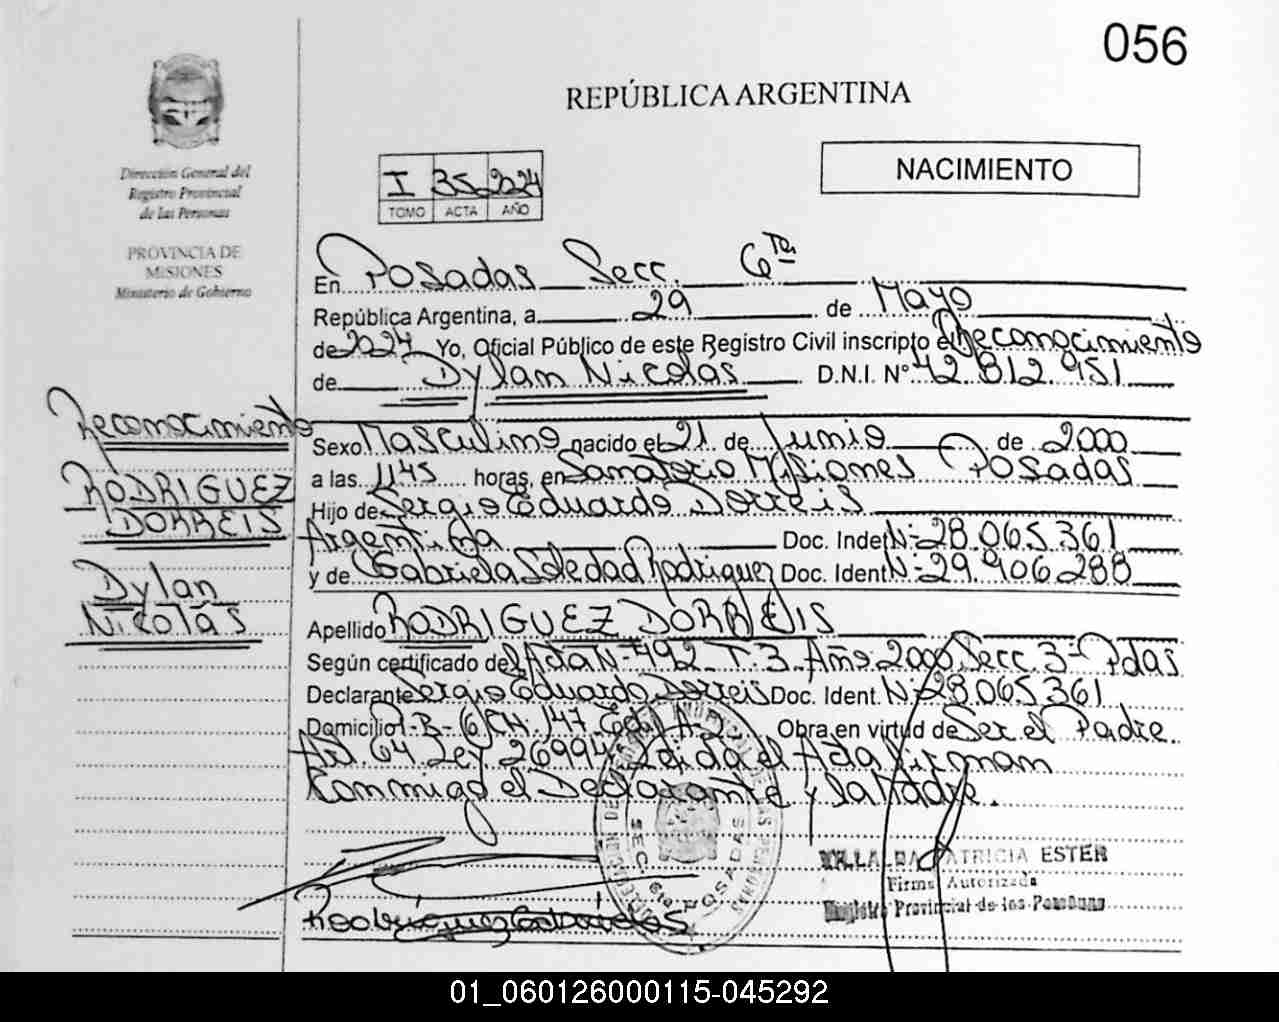 056
REPÚBLICA ARGENTINA
NACIMIENTO
Dirección General del
Registro Provincial
de las Personas
PROVINCIA DE
MISIONES
Ministerio de Gobierno
I 35 2024
TOMO ACTA AÑO
En Posadas Secc. 6ta
República Argentina, a 29 de Mayo
de 2024 Yo, Oficial Público de este Registro Civil inscripto el Reconocimiento
de Dylan Nicolas D.N.I. Nº 42.812.951
Reconocimiento
RODRIGUEZ
DORREIS
Dylan
Nicolás
Sexo Masculino nacido el 21 de Junio de 2000
a las 1145 horas, en Sanatorio Misiones Posadas
Hijo de Sergio Eduardo Dorreis
Argentina Doc. Ident. Nº 28.065.361
y de Gabriela Soledad Rodriguez Doc. Ident. Nº 29.906.288
Apellido RODRIGUEZ DORREIS
Según certificado del Acta Nº 492 T. 3 Año 2000 Secc. 3ª Pdas
Declarante Sergio Eduardo Dorreis Doc. Ident. Nº 28.065.361
Domicilio CH. 147 Edif. Obra en virtud de Ser el Padre
Art. 64 Ley 26994 Leida el Acta firman
Conmigo el Declarante y la Madre.
SEC. 6ta POSADAS
VILLALBA PATRICIA ESTER
Firma Autorizada
Registro Provincial de las Personas
01_060126000115-045292